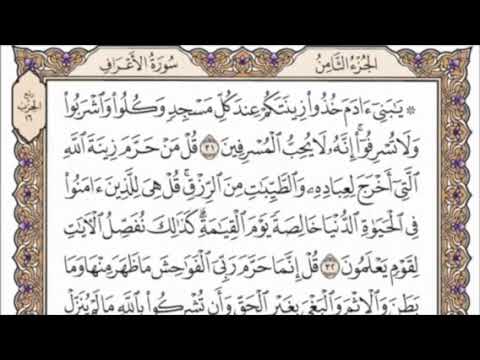 الجزء الثامن
سورة الأعراف
ربع
الحزب
١٦
۞ يَٰبَنِىٓ ءَادَمَ خُذُوا۟ زِينَتَكُمْ عِندَ كُلِّ مَسْجِدٍ وَكُلُوا۟ وَٱشْرَبُوا۟
وَلَا تُسْرِفُوٓا۟ ۚ إِنَّهُۥ لَا يُحِبُّ ٱلْمُسْرِفِينَ ٣١ قُلْ مَنْ حَرَّمَ زِينَةَ ٱللَّهِ
ٱلَّتِىٓ أَخْرَجَ لِعِبَادِهِۦ وَٱلطَّيِّبَٰتِ مِنَ ٱلرِّزْقِ ۚ قُلْ هِىَ لِلَّذِينَ ءَامَنُوا۟
فِى ٱلْحَيَوٰةِ ٱلدُّنْيَا خَالِصَةً يَوْمَ ٱلْقِيَٰمَةِ ۗ كَذَٰلِكَ نُفَصِّلُ ٱلْءَايَٰتِ
لِقَوْمٍ يَعْلَمُونَ ٣٢ قُلْ إِنَّمَا حَرَّمَ رَبِّىَ ٱلْفَوَٰحِشَ مَا ظَهَرَ مِنْهَا وَمَا
بَطَنَ وَٱلْإِثْمَ وَٱلْبَغْىَ بِغَيْرِ ٱلْحَقِّ وَأَن تُشْرِكُوا۟ بِٱللَّهِ مَا لَمْ يُنَزِّلْ